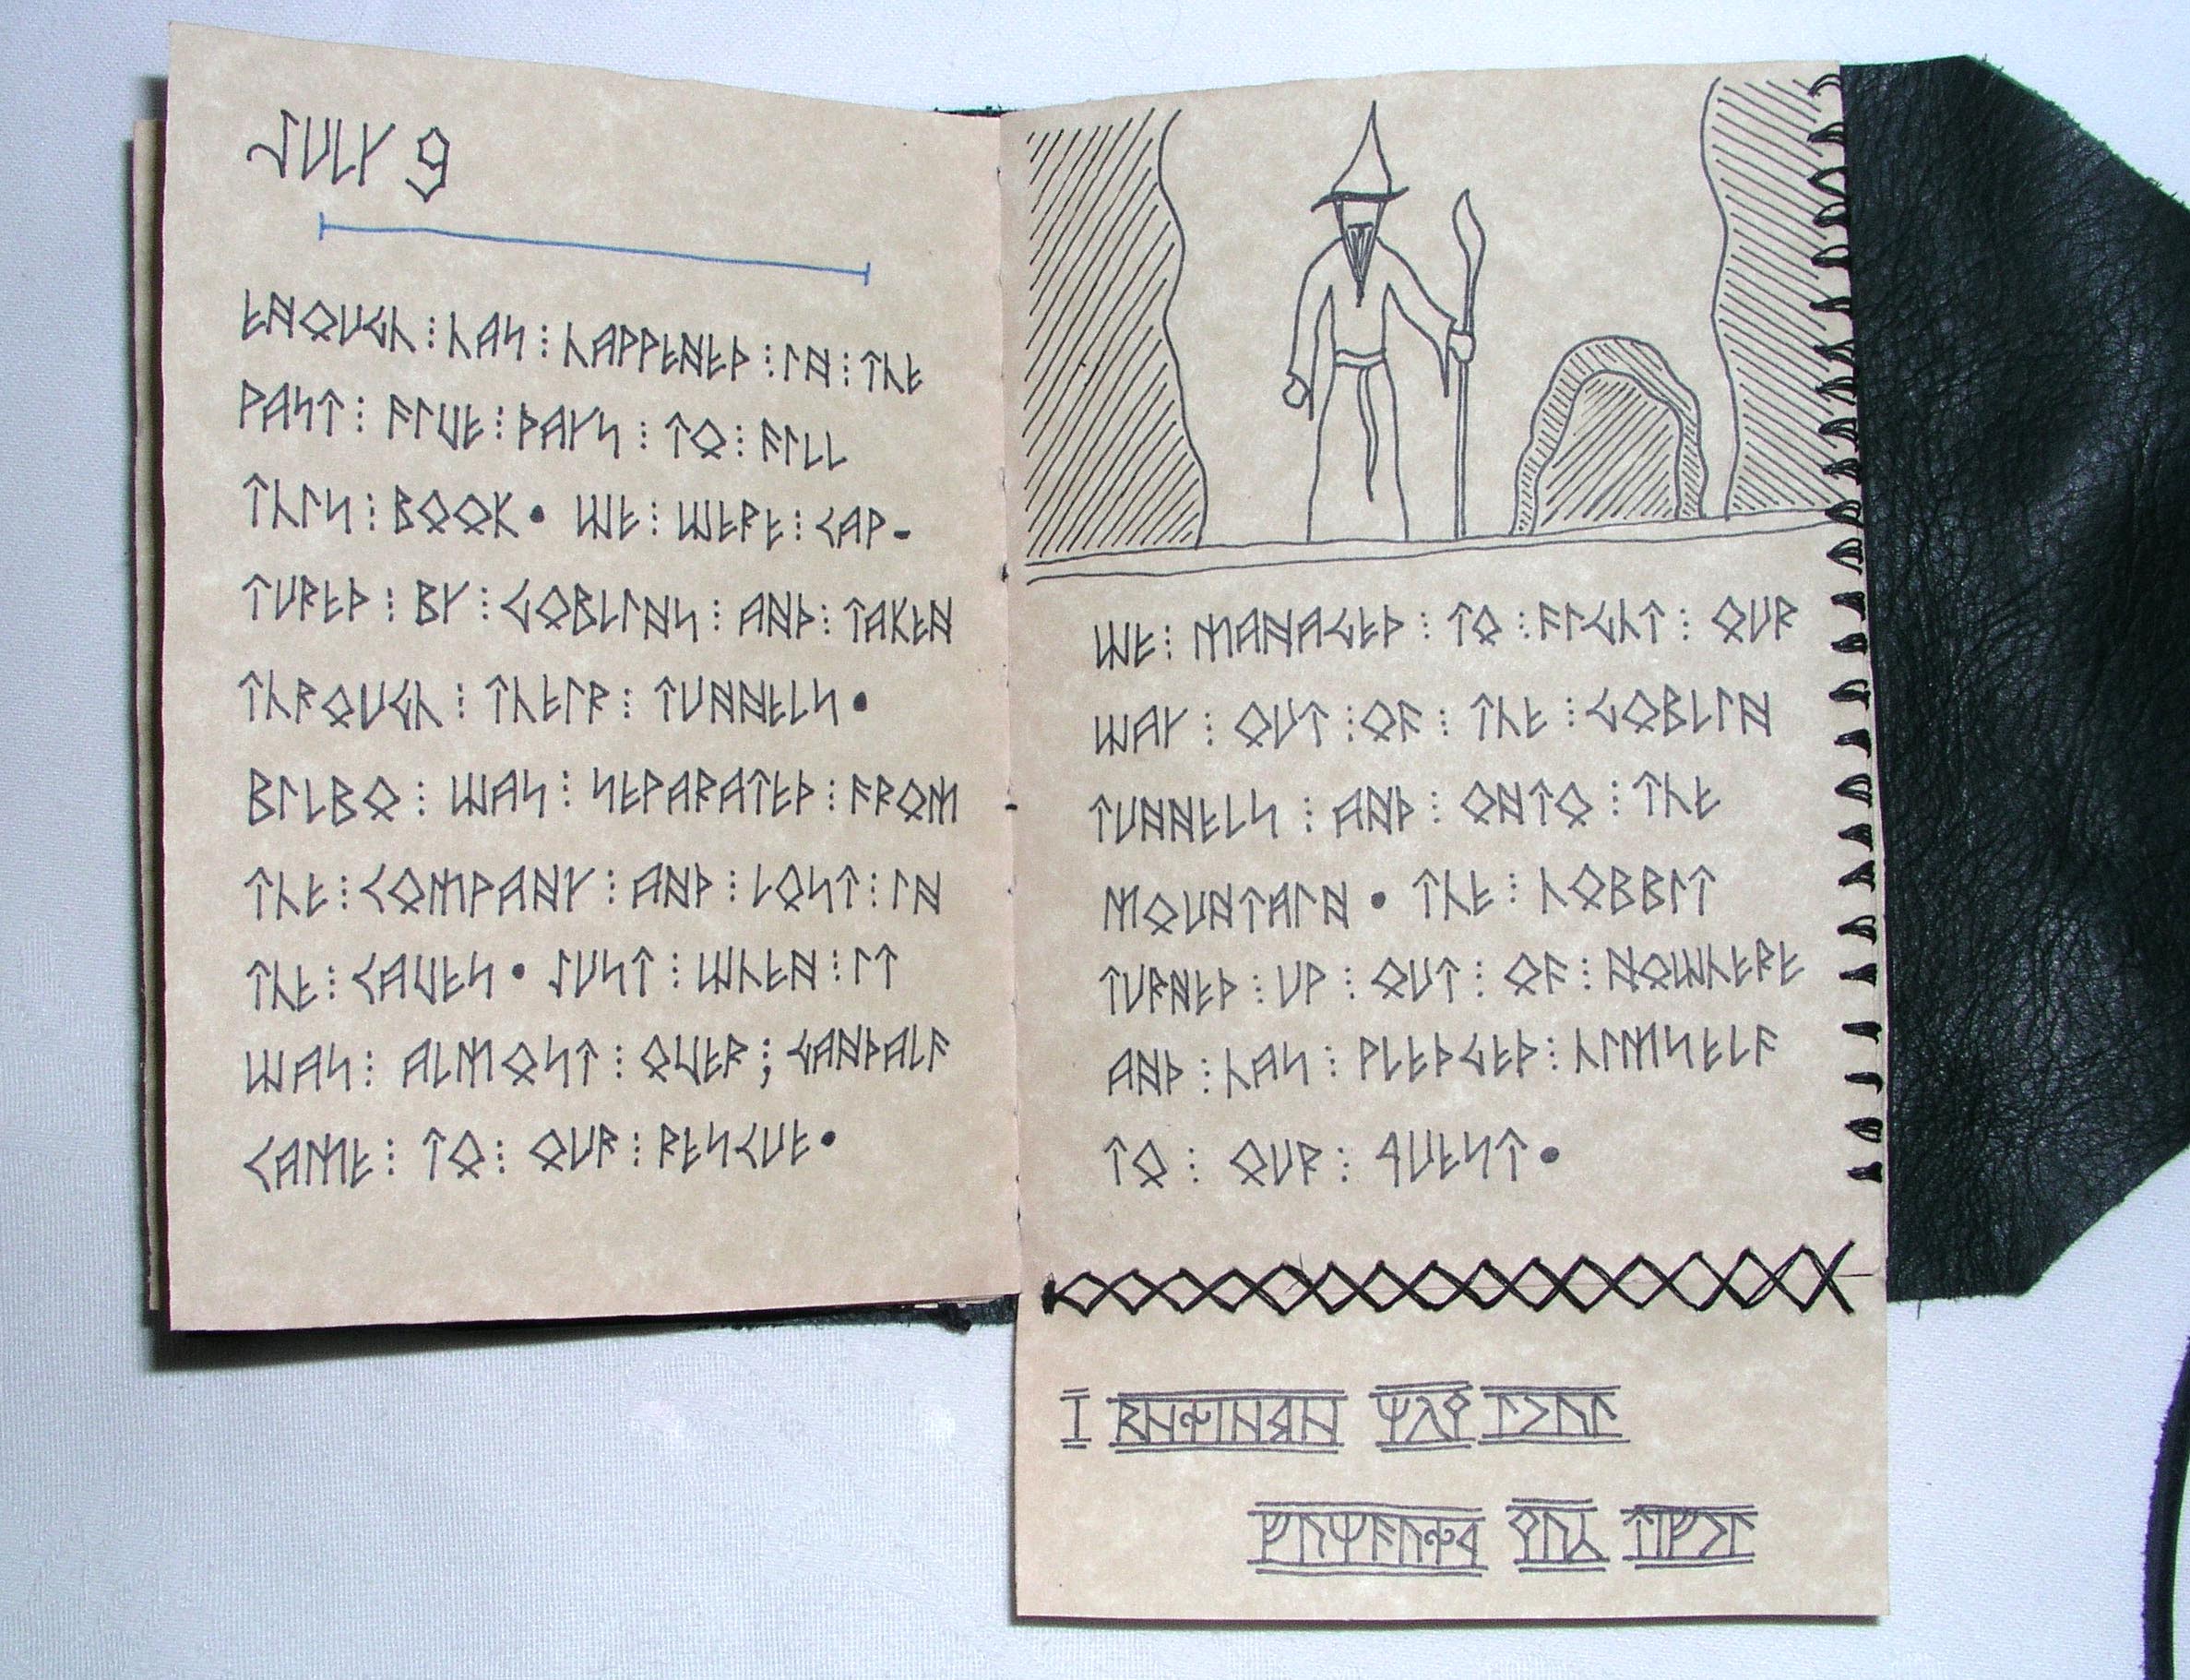 JULY 9
ENOUGH⋮HAS⋮HAPPENED⋮IN⋮THE
PAST⋮FIVE⋮DAYS⋮TO⋮FILL
THIS⋮BOOK• WE⋮WERE⋮CAP-
TURED⋮BY⋮GOBLINS⋮AND⋮TAKEN
THROUGH⋮THEIR⋮TUNNELS•
BILBO⋮WAS⋮SEPARATED⋮FROM
THE⋮COMPANY⋮AND⋮LOST⋮IN
THE⋮CAVES• JUST⋮WHEN⋮IT
WAS⋮ALMOST⋮OVER; GANDALF
CAME⋮TO⋮OUR⋮RESCUE•
WE⋮MANAGED⋮TO⋮FIGHT⋮OUR
WAY⋮OUT⋮OF⋮THE⋮GOBLIN
TUNNELS⋮AND⋮ONTO⋮THE
MOUNTAIN• THE⋮HOBBIT
TURNED⋮UP⋮OUT⋮OF⋮NOWHERE
AND⋮HAS⋮PLEDGED⋮HIMSELF
TO⋮OUR⋮QUEST•